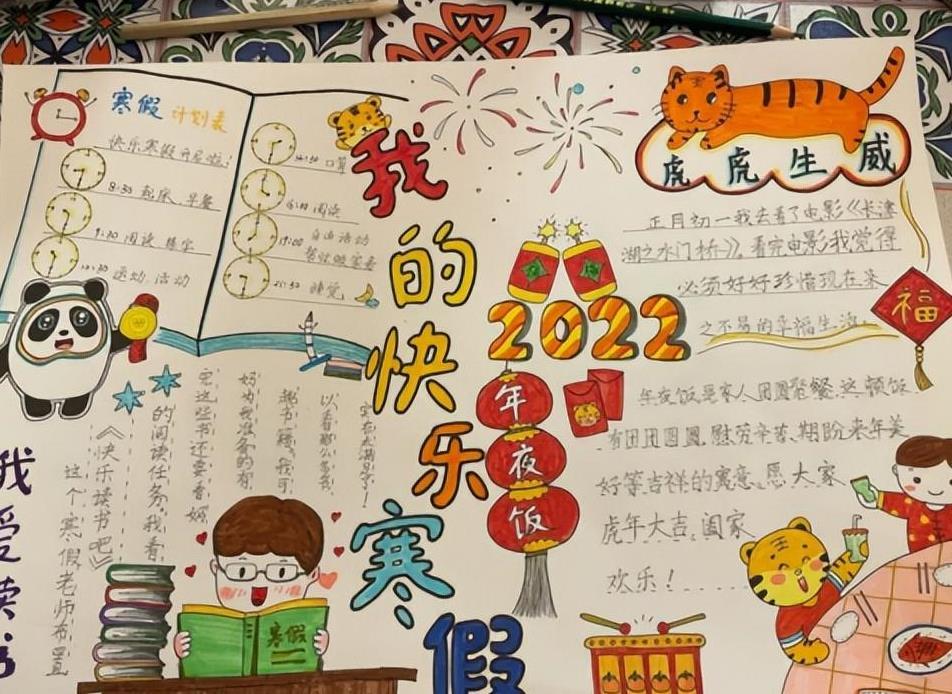 寒假
计划表
快乐寒假开启啦！
8:30 起床、早餐
9:30 阅读 练字
10:30 运动、活动
口算
阅读
自由活动
睡觉
我的快乐寒假
虎虎生威
正月初一我去看了电影《长津
湖之水门桥》。看完电影我觉得
必须好好珍惜现在来
之不易的幸福生活。
福
2022
年夜饭
年夜饭是家人团圆聚餐。这顿饭
有团团圆圆、慰劳辛苦、期盼来年美
好等吉祥的寓意。愿大家
虎年大吉、阖家
欢乐！
我爱读书
这个寒假老师布置
《快乐读书吧》
的阅读任务。我看
完这些书还要看妈
妈为我准备的有
趣书籍。我可
以看那么多书
寒假